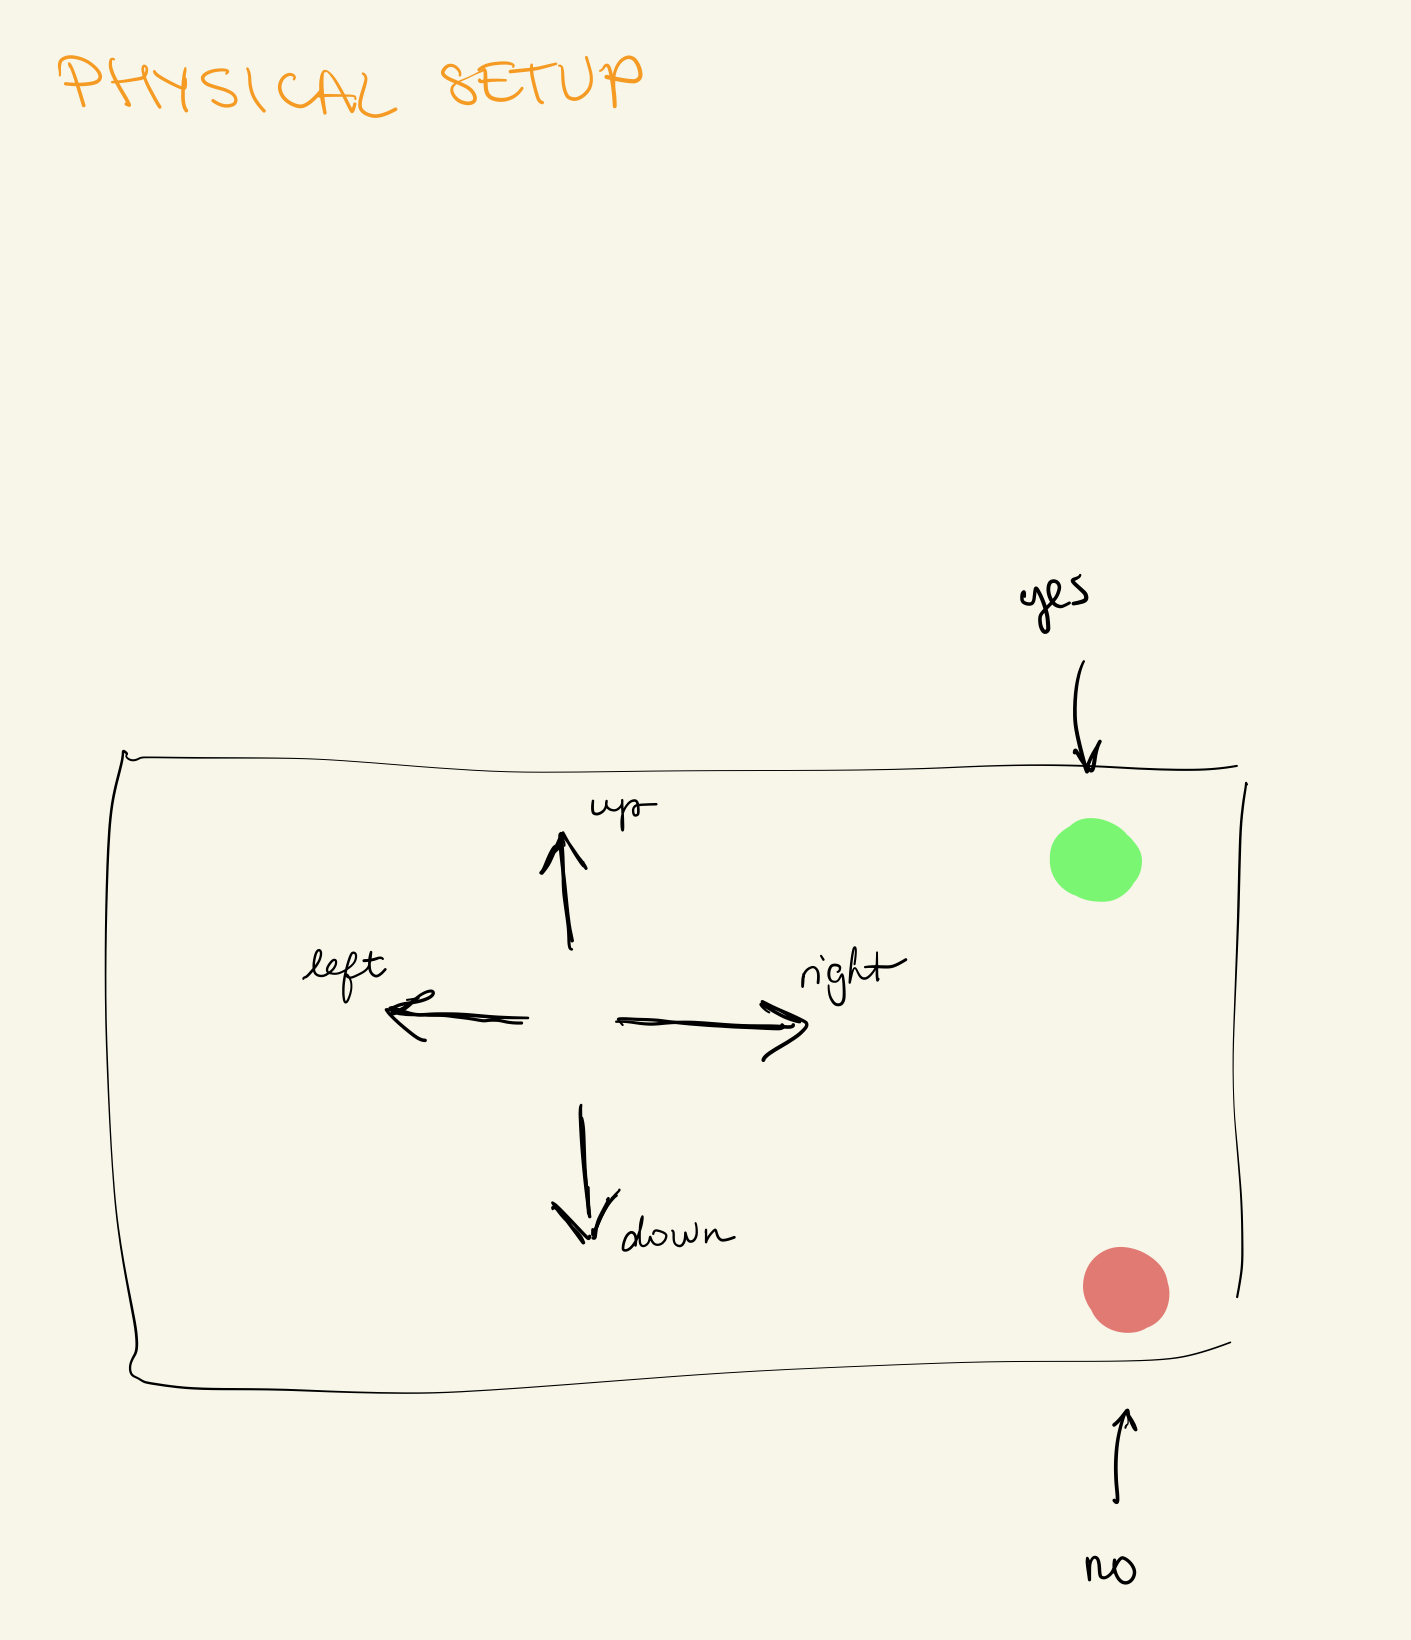 PHYSICAL SETUP
yes
up
left
right
down
no